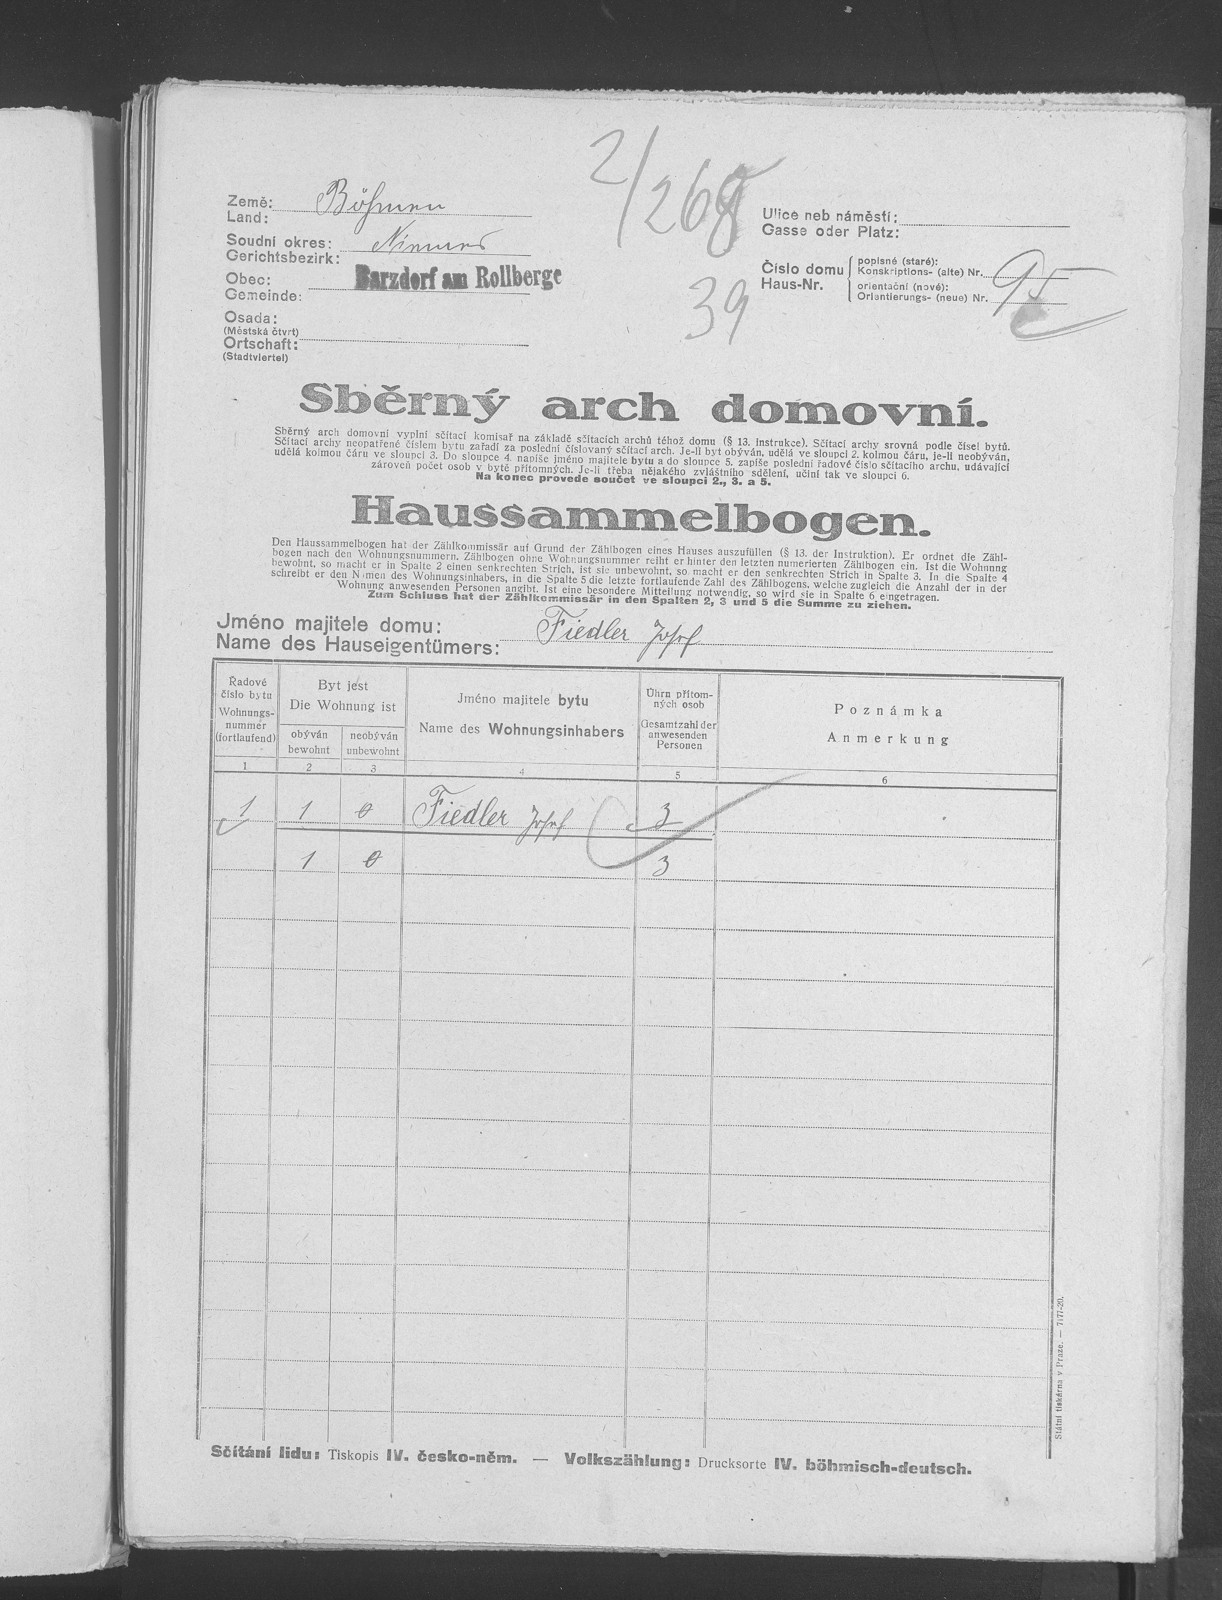 2/268
39
Země: Böhmen
Land:
Soudní okres: Niemes
Gerichtsbezirk:
Obec: Barzdorf am Rollberge
Gemeinde:
Osada:
(Městská čtvrt)
Ortschaft:
(Stadtviertel)
Ulice neb náměstí:
Gasse oder Platz:
Číslo domu
Haus-Nr.
popisné (staré):
Konskriptions- (alte) Nr. 95
orientační (nové):
Orientierungs- (neue) Nr.
Sběrný arch domovní.
Sběrný arch domovní vyplní sčítací komisař na základě sčítacích archů téhož domu (§ 13. instrukce). Sčítací archy srovná podle čísel bytů.
Sčítací archy neopatřené číslem bytu zařadí za poslední číslovaný sčítací arch. Je-li byt obýván, udělá ve sloupci 2. kolmou čáru, je-li neobýván,
udělá kolmou čáru ve sloupci 3. Do sloupce 4. napíše jméno majitele bytu a do sloupce 5. zapíše poslední řadové číslo sčítacího archu, udávající
zároveň počet osob v bytě přítomných. Je-li třeba nějakého zvláštního sdělení, učiní tak ve sloupci 6.
Na konec provede součet ve sloupci 2., 3. a 5.
Haussammelbogen.
Den Haussammelbogen hat der Zählkommissär auf Grund der Zählbogen eines Hauses auszufüllen (§ 13. der Instruktion). Er ordnet die Zähl-
bogen nach den Wohnungsnummern. Zählbogen ohne Wohnungsnummer reiht er hinter den letzten numerierten Zählbogen ein. Ist die Wohnung
bewohnt, so macht er in Spalte 2 einen senkrechten Strich, ist sie unbewohnt, so macht er den senkrechten Strich in Spalte 3. In die Spalte 4
schreibt er den Namen des Wohnungsinhabers, in die Spalte 5 die letzte fortlaufende Zahl des Zählbogens, welche zugleich die Anzahl der in der
Wohnung anwesenden Personen angibt. Ist eine besondere Mitteilung notwendig, so wird sie in Spalte 6 eingetragen.
Zum Schluss hat der Zählkommissär in den Spalten 2, 3 und 5 die Summe zu ziehen.
Jméno majitele domu: Fiedler Josef
Name des Hauseigentümers:
Řadové
číslo bytu
Wohnungs-
nummer
(fortlaufend)
Byt jest
Die Wohnung ist
obýván
bewohnt
neobýván
unbewohnt
Jméno majitele bytu
Name des Wohnungsinhabers
Úhrn přítom-
ných osob
Gesamtzahl der
anwesenden
Personen
Poznámka
Anmerkung
1 2 3 4 5 6
1 1 0 Fiedler Josef 3
1 0 3
Státní tiskárna v Praze. — 7177-20.
Sčítání lidu: Tiskopis IV. česko-něm. — Volkszählung: Drucksorte IV. böhmisch-deutsch.